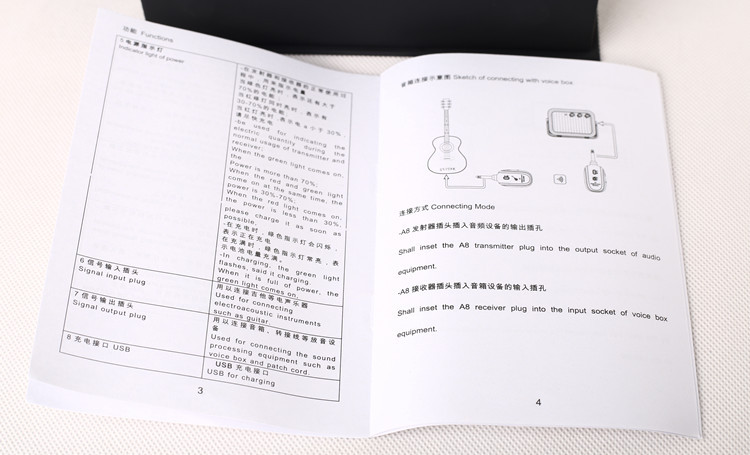 功能 Functions
5 电源指示灯
Indicator light of power
-在发射器和接收器的正常使用过
程中,用来指示电量
当绿灯亮时,表示电有大于
70%的电能
当红绿灯同时亮时,表示有
30-70%的电能
当红灯亮时,表示电量小于30%,
请尽快充电
-be used for indicating the
electric quantity during the
normal usage of transmitter and
receiver:
When the green light comes on,
the
Power is more than 70%;
When the red and green light
come on at the same time, the
power is 30%-70%,
When the red light comes on,
the power is less than 30%,
please charge it as soon as
possible;
-在充电时,绿色指示灯会闪烁,
表示正在充电
在充满时,绿色指示灯常亮,表
示电池电量充满。
-In charging, the green light
flashes, said it charging.
When it is full of power, the
green light comes on.
6 信号输入插头
Signal input plug
用以连接吉他等电声乐器
Used for connecting
electroacoustic instruments
such as guitar.
7 信号输出插头
Signal output plug
用以连接音箱、转接线等放音设
备
Used for connecting the sound
processing equipment such as
voice box and patch cord.
8 充电接口 USB
USB 充电接口
USB for charging
3
音频连接示意图 Sketch of connecting with voice box
连接方式 Connecting Mode
-A8 发射器插头插入音频设备的输出插孔
Shall inset the A8 transmitter plug into the output socket of audio
equipment.
-A8 接收器插头插入音箱设备的输入插孔
Shall inset the A8 receiver plug into the input socket of voice box
equipment.
4